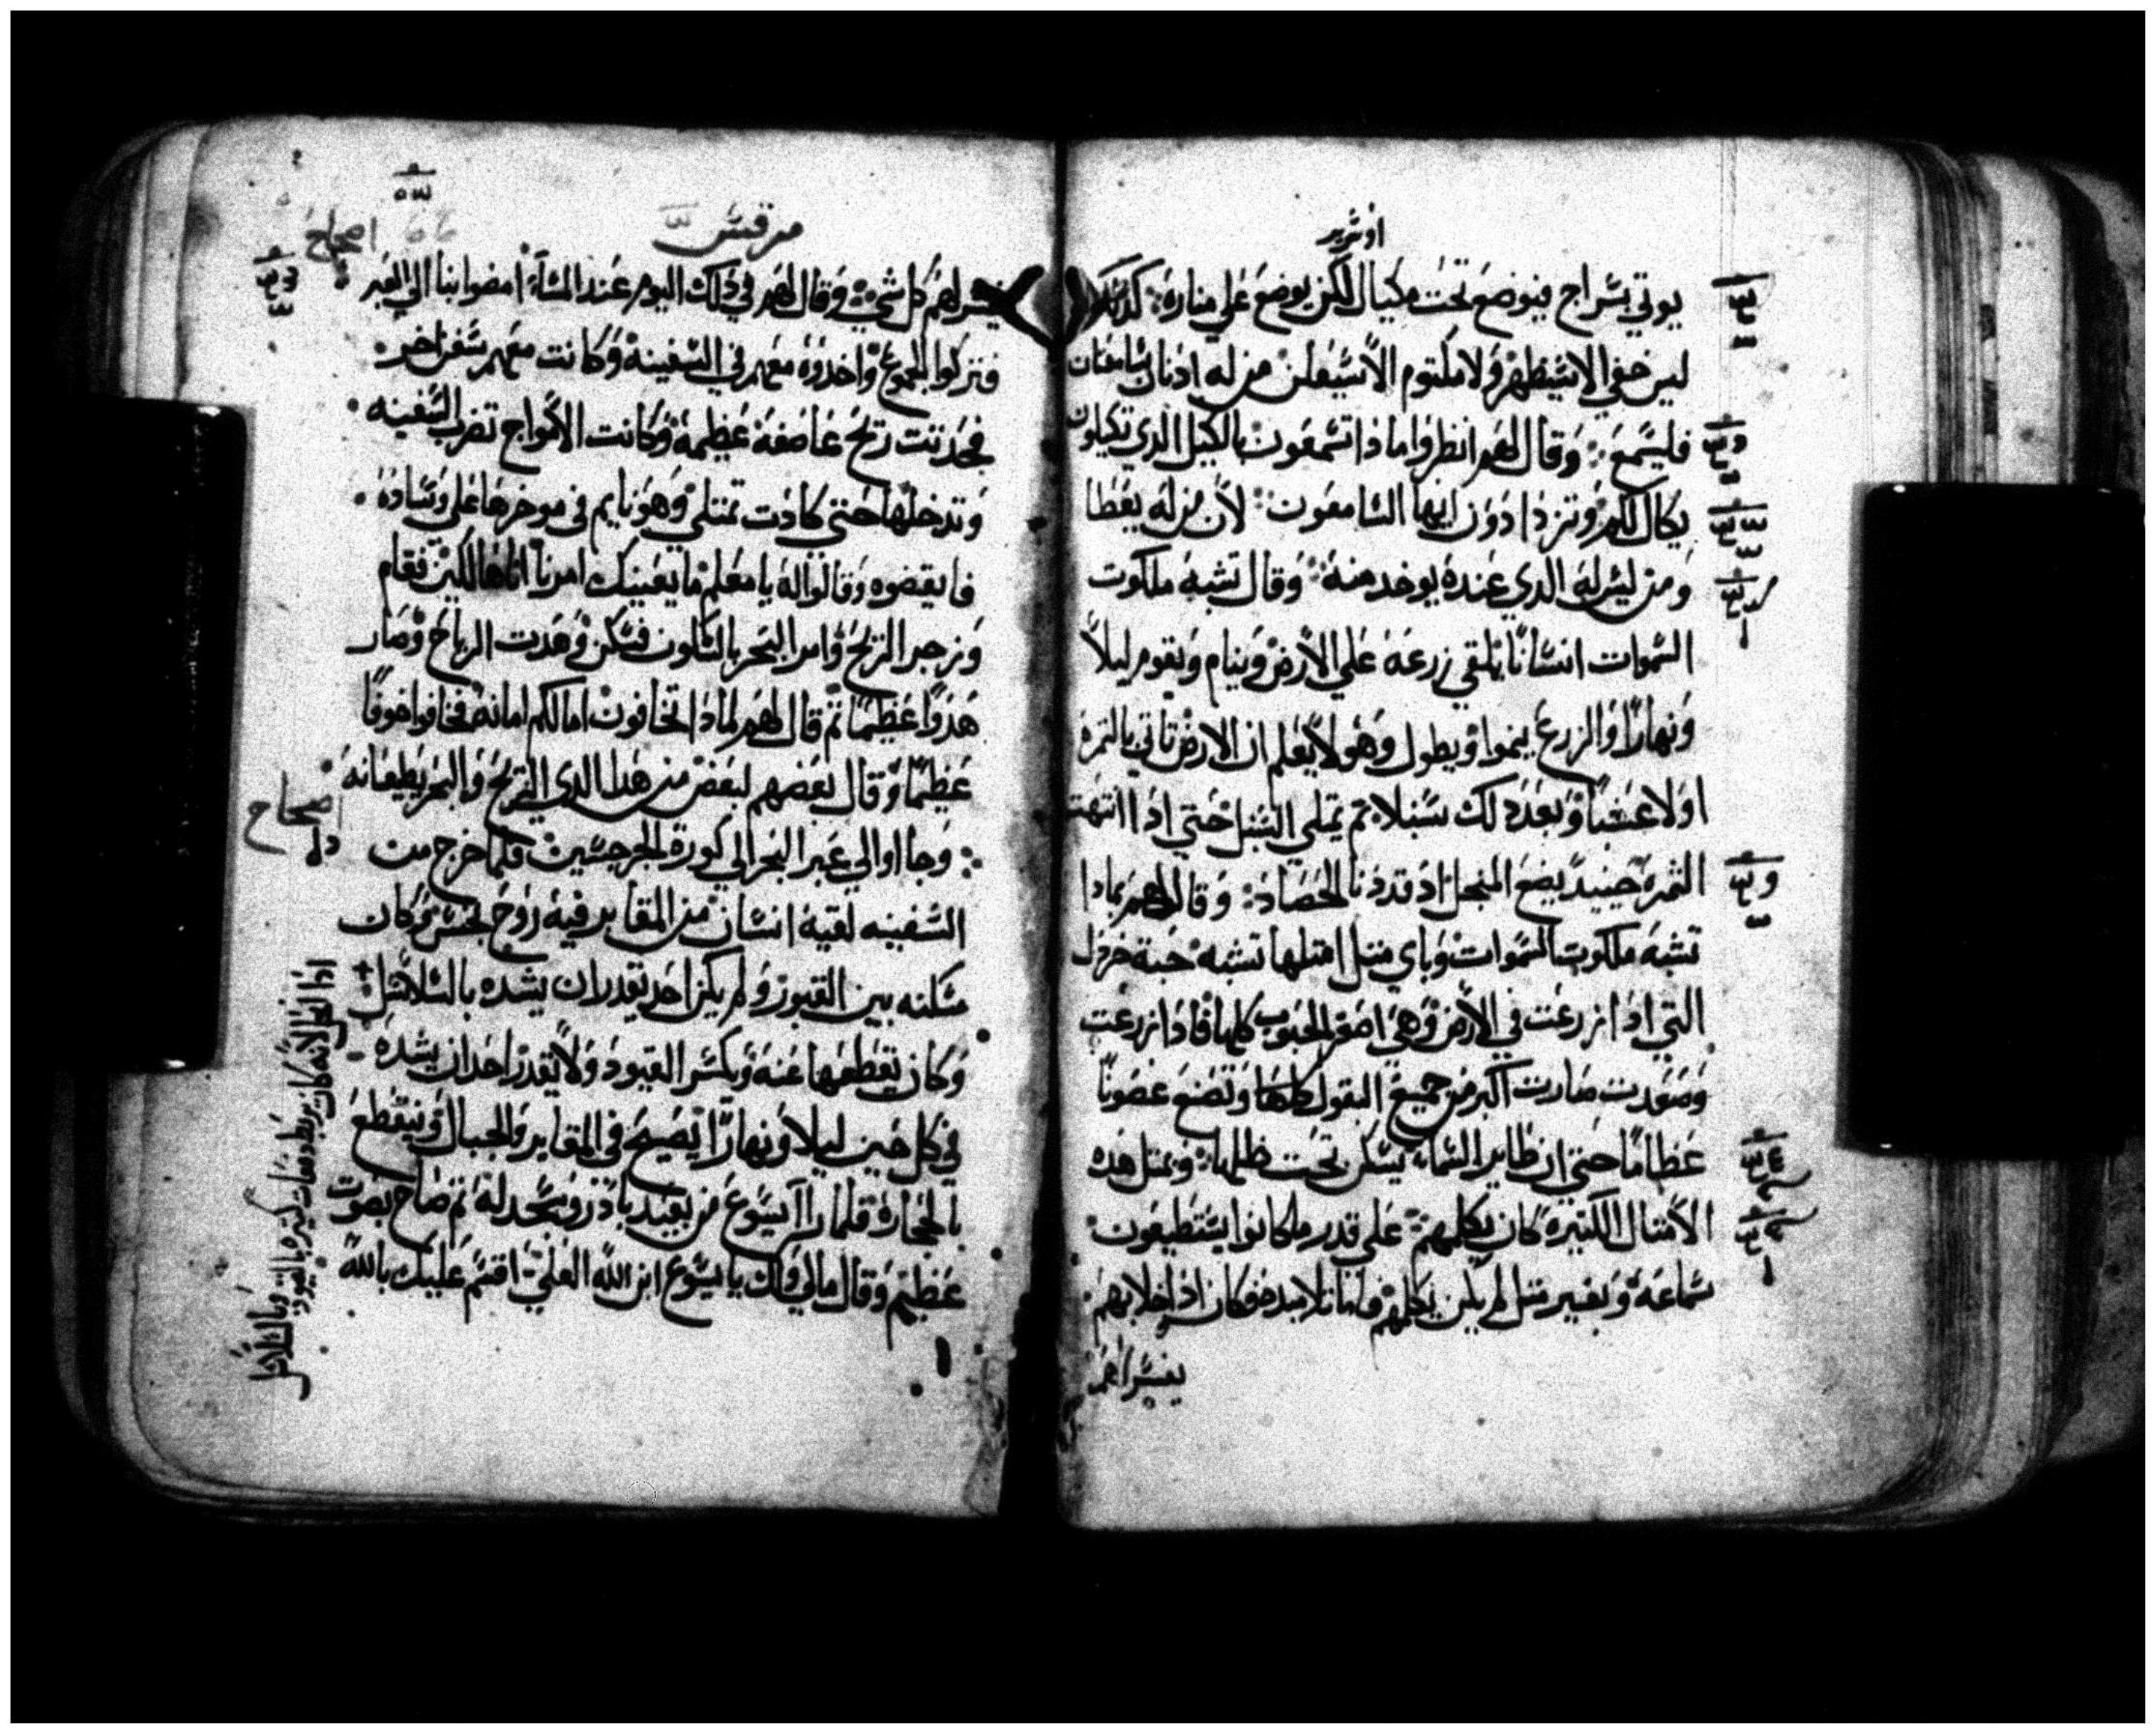 او سرير
يوتي بسراج فيوضع تحت مكيال لكن يوضع علي مناره كذلك
ليس خفي الا سيظهر ولا مكتوم الا سيعلن من له ادنان سامعتان
فليسمع وقال لهم انظروا ما ذا تسمعون بالكيل الدي تكيلون
يكال لكم وتزدادون ايها السامعون لان من له يعطا
ومن ليس له الدي عنده يوخد منه وقال تشبه ملكوت
السموات انسانا يلقي زرعه علي الارض وينام ويقوم ليلا
ونهارا والزرع ينموا ويطول وهو لا يعلم ان الارض تاتي بالثمره
اولا عشبا وبعد دلك سنبلا ثم يمتلي السنبل حتي ادا انتهت
الثمره حينيد يضع المنجل اد قد دنا الحصاد وقال لهم بمادا
تشبه ملكوت السموات وباي متل امتلها تشبه حبة خردل
التي ادا زرعت في الارض وهي اصغر الحبوب كلها فادا زرعت
وصعدت صارت اكبر من جميع البقول كلها وتصنع غصونا
عظاما حتي ان طاير السماء يسكن تحت ظلها وبمتل هده
الامتال الكتيره كان يكلمهم علي قدر ما كانوا يستطيعون
سماعه وبغير متل لم يكن يكلمهم فاما تلاميده فكان ادا خلا بهم
يفسر لهم
مرقس
اصحاح
يفسر لهم كل شي وقال لهم في دلك اليوم عند المساء امضوا بنا الي العبر
فتركوا الجموع واخدوه معهم في السفينه وكانت معهم سفن اخر
فحدتت ريح عاصفه عظيمه وكانت الامواج تضرب السفينه
وتدخلها حتي كادت تمتلي وهو نايم في موخرها علي وساده
فايقضوه وقالوا له يا معلم ما يعنيك امرنا اننا هالكين فقام
وزجر الريح وامر البحر بالسكون فسكن وهدت الرياح وصار
هدوا عظيما تم قال لهم لمادا تخافون اما لكم امانه فخافوا خوفا
عظيما وقال بعضهم لبعض من هدا الدي الريح والبحر يطيعانه
اصحاح
وجااوا الي عبر البحر الي كورة الجرجسيين فلما خرج من
السفينه لقيه انسان من المقابر فيه روح نجس وكان
مسكنه بين القبور ولم يكن احد يقدر ان يشده بالسلاسل
وكان يقطعها عنه ويكسر القيود ولا يقدر احد ان يشده
في كل حين ليلا ونهارا يصيح في المقابر والجبال ويتقطع
بالحجاره فلما راا يسوع من بعيد بادر وسجد له تم صاح بصوت
عظيم وقال مالي ولك يا يسوع ابن الله العلي اقسم عليك بالله
لانه كان يربط دفعات كتيره بالقيود وبالسلاسل